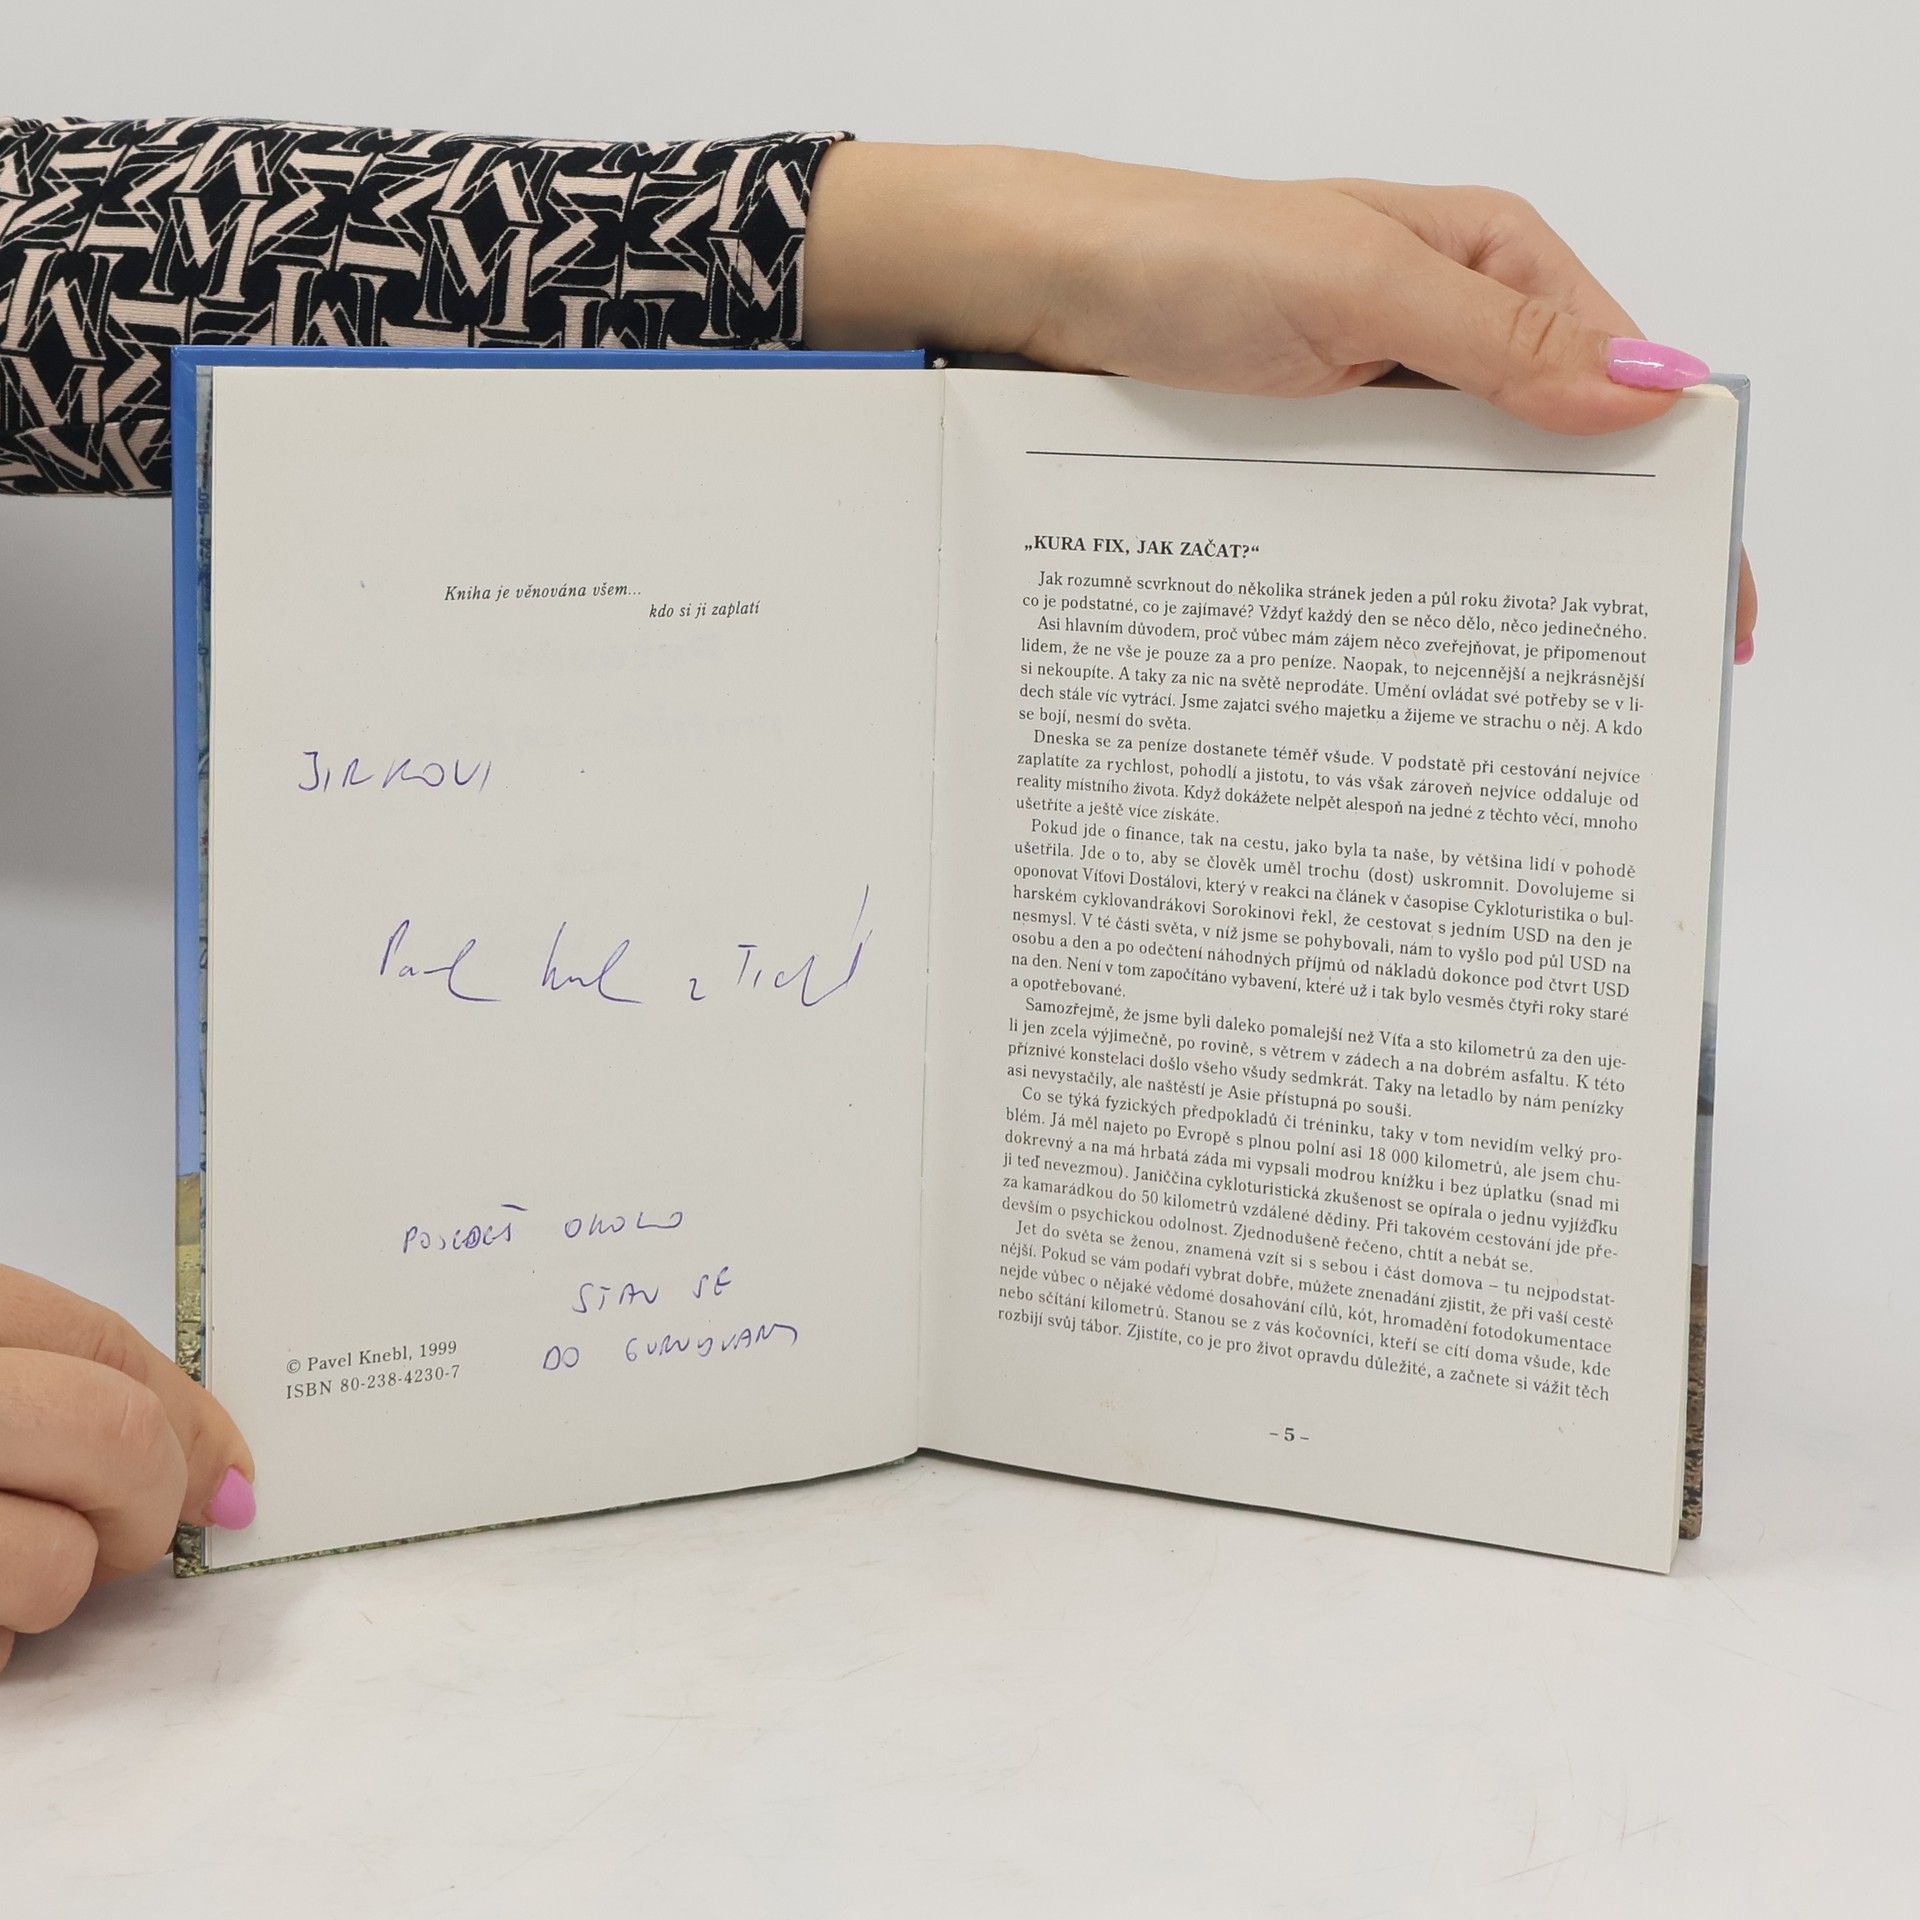 Kniha je věnována všem...
kdo si ji zaplatí
JIRKOVI
Pavel
z
OKOLO
STAV SE
DO
© Pavel Knebl, 1999
ISBN 80-238-4230-7
„KURA FIX, JAK ZAČAT?“
Jak rozumně scvrknout do několika stránek jeden a půl roku života? Jak vybrat,
co je podstatné, co je zajímavé? Vždyť každý den se něco dělo, něco jedinečného.
Asi hlavním důvodem, proč vůbec mám zájem něco zveřejňovat, je připomenout
lidem, že ne vše je pouze za a pro peníze. Naopak, to nejcennější a nejkrásnější
si nekoupíte. A taky za nic na světě neprodáte. Umění ovládat své potřeby se v li-
dech stále víc vytrácí. Jsme zajatci svého majetku a žijeme ve strachu o něj. A kdo
se bojí, nesmí do světa.
Dneska se za peníze dostanete téměř všude. V podstatě při cestování nejvíce
zaplatíte za rychlost, pohodlí a jistotu, to vás však zároveň nejvíce oddaluje od
reality místního života. Když dokážete nelpět alespoň na jedné z těchto věcí, mnoho
ušetříte a ještě více získáte.
Pokud jde o finance, tak na cestu, jako byla ta naše, by většina lidí v pohodě
ušetřila. Jde o to, aby se člověk uměl trochu (dost) uskromnit. Dovolujeme si
oponovat Víťovi Dostálovi, který v reakci na článek v časopise Cykloturistika o bul-
harském cyklovandrákovi Sorokinovi řekl, že cestovat s jedním USD na den je
nesmysl. V té části světa, v níž jsme se pohybovali, nám to vyšlo pod půl USD na
osobu a den a po odečtení náhodných příjmů od nákladů dokonce pod čtvrt USD
na den. Není v tom započítáno vybavení, které už i tak bylo vesměs čtyři roky staré
a opotřebované.
Samozřejmě, že jsme byli daleko pomalejší než Víťa a sto kilometrů za den uje-
li jen zcela výjimečně, po rovině, s větrem v zádech a na dobrém asfaltu. K této
příznivé konstelaci došlo všeho všudy sedmkrát. Taky na letadlo by nám penízky
asi nevystačily, ale naštěstí je Asie přístupná po souši.
Co se týká fyzických předpokladů či tréninku, taky v tom nevidím velký pro-
blém. Já měl najeto po Evropě s plnou polní asi 18 000 kilometrů, ale jsem chu-
dokrevný a na má hrbatá záda mi vypsali modrou knížku i bez úplatku (snad mi
ji teď nevezmou). Janiččina cykloturistická zkušenost se opírala o jednu vyjížďku
za kamarádkou do 50 kilometrů vzdálené dědiny. Při takovém cestování jde pře-
devším o psychickou odolnost. Zjednodušeně řečeno, chtít a nebát se.
Jet do světa se ženou, znamená vzít si s sebou i část domova – tu nejpodstat-
nější. Pokud se vám podaří vybrat dobře, můžete znenadání zjistit, že při vaší cestě
nejde vůbec o nějaké vědomé dosahování cílů, kót, hromadění fotodokumentace
nebo sčítání kilometrů. Stanou se z vás kočovníci, kteří se cítí doma všude, kde
rozbijí svůj tábor. Zjistíte, co je pro život opravdu důležité, a začnete si vážit těch
– 5 –